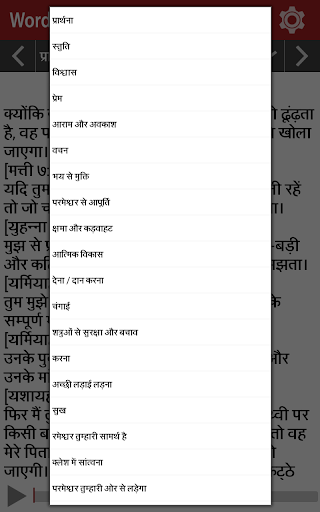 Word
प्रार्थना
स्तुति
विश्वास
प्रेम
आराम और अवकाश
वचन
भय से मुक्ति
परमेश्वर से आपूर्ति
क्षमा और कड़वाहट
आत्मिक विकास
देना / दान करना
चंगाई
शत्रुओं से सुरक्षा और बचाव
करना
अच्छी लड़ाई लड़ना
सुख
रमेश्वर तुम्हारी सामर्थ है
क्लेश में सांत्वना
परमेश्वर तुम्हारी ओर से लड़ेगा
क्योंकि
ढूंढ़ता
है, वह
खोला
जाएगा।
[मत्ती ७:
यदि तुम
नी रहें
तो जो
[युहन्ना
मुझ से
-बड़ी
और
झता।
[यर्मिया
तुम मुझे
के
सम्पूर्ण
[यर्मिया
उनके
और
उनके
[यशायह
फिर मैं
थ्वी पर
किसी
तो वह
मेरे पिता
जाएगी।
कट्ठे